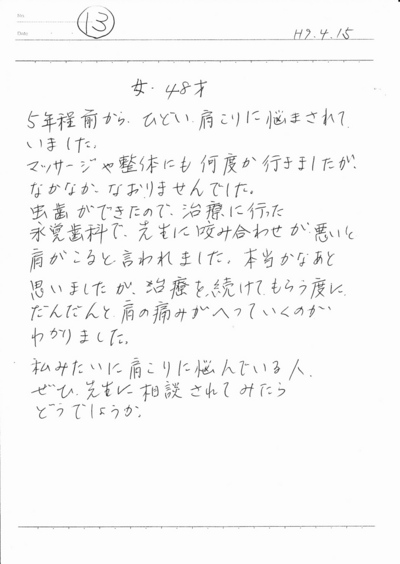 No.
Date
13
H9.4.15
女・48才
5年程前から、ひどい肩こりに悩まされて
いました。
マッサージや整体にも何度か行きましたが、
なかなか、なおりませんでした。
虫歯ができたので、治療に行った
永覚歯科で、先生に咬み合わせが悪いと
肩がこると言われました。本当かなあと
思いましたが、治療を続けてもらう度に、
だんだんと肩の痛みがへっていくのが
わかりました。
私みたいに肩こりに悩んでいる人、
ぜひ、先生に相談されてみたら
どうでしょうか。